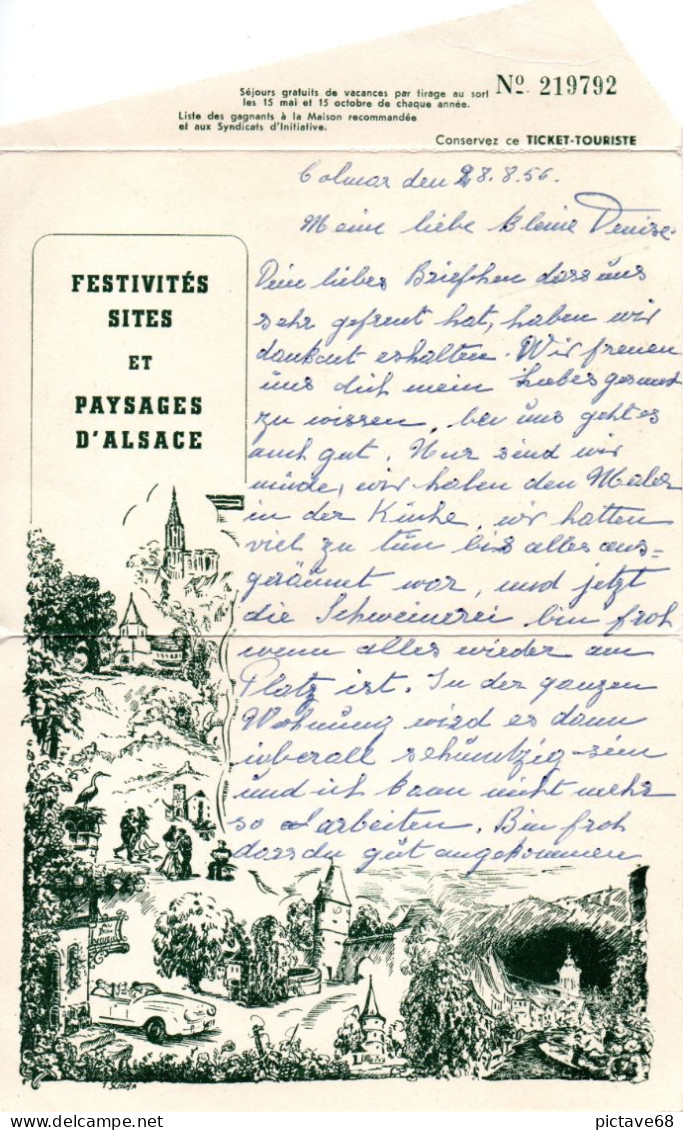 Séjours gratuits de vacances par tirage au sort
les 15 mai et 15 octobre de chaque année.
Nº 219792
Liste des gagnants à la Maison recommandée
et aux Syndicats d'Initiative.
Conservez ce TICKET-TOURISTE
Colmar den 28.8.56.
Meine liebe kleine Denise.
FESTIVITÉS
SITES
ET
PAYSAGES
D'ALSACE
Dein liebes Briefchen dass uns
sehr gefreut hat, haben wir
dankent erhalten. Wir freuen
uns dich mein liebes gesund
zu wissen, bei uns geht es
auch gut. Nur sind wir
müde, wir haben den Maler
in der Küche, wir hatten
viel zu tun bis alles aus-
geräumt war, und jetzt
die Schweinerei bin froh
wenn alles wieder am
Platz ist. In der ganzen
Wohnung wird es dann
überall schmutzig sein
und ich kann nicht mehr
so arbeiten. Bin froh
dass du gut angekommen
pictave68